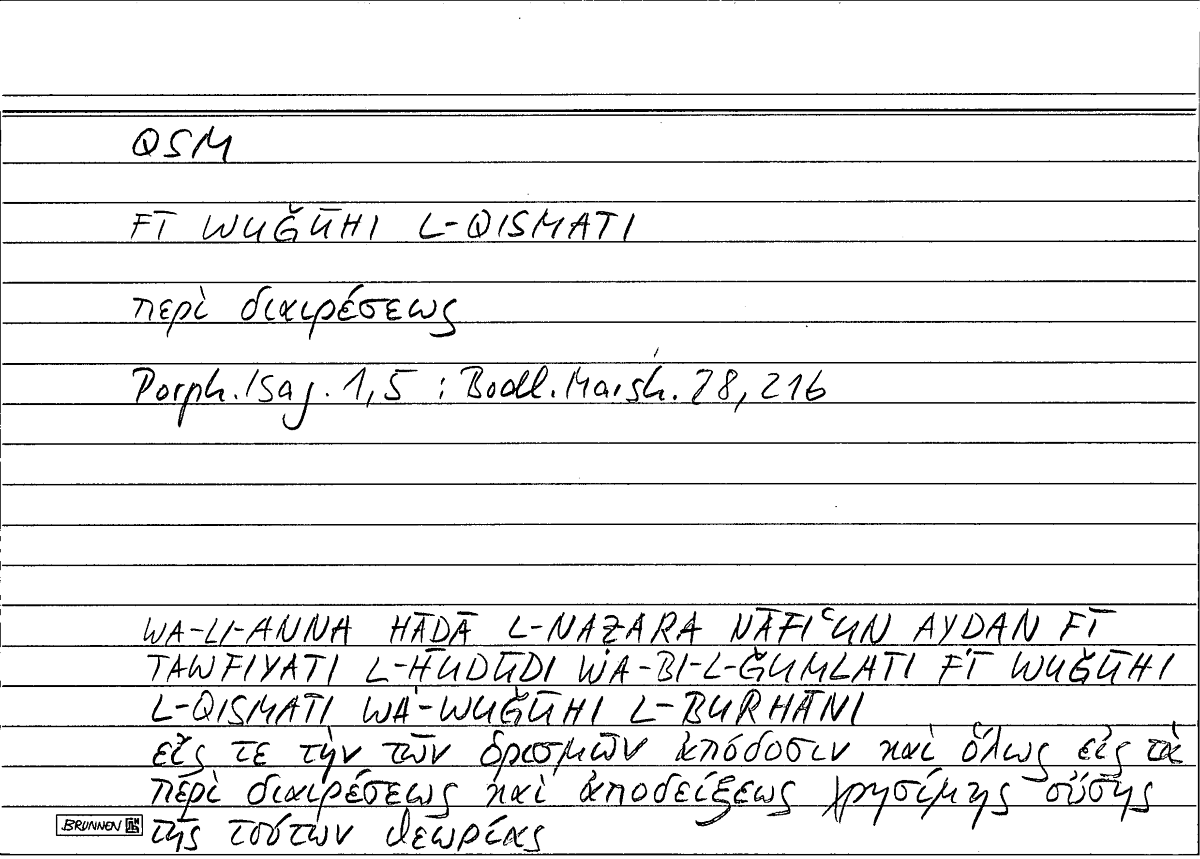 QSM
FĪ WUĞŪHI L-QISMATI
περὶ διαιρέσεως
Porph. Isag. 1,5 : Bodl. Marsh. 28, 216
WA-LI-ANNA HĀḎĀ L-NAẒARA NĀFIʿUN AYḌAN FĪ
TAWFIYATI L-ḤUDŪDI WA-BI-L-ĞUMLATI FĪ WUĞŪHI
L-QISMATI WA-WUĞŪHI L-BURHĀNI
εἴς τε τὴν τῶν ὁρισμῶν ἀπόδοσιν καὶ ὅλως εἰς τὰ
περὶ διαιρέσεως καὶ ἀποδείξεως χρησίμης οὔσης
BRUNNEN τῆς τούτων θεωρίας